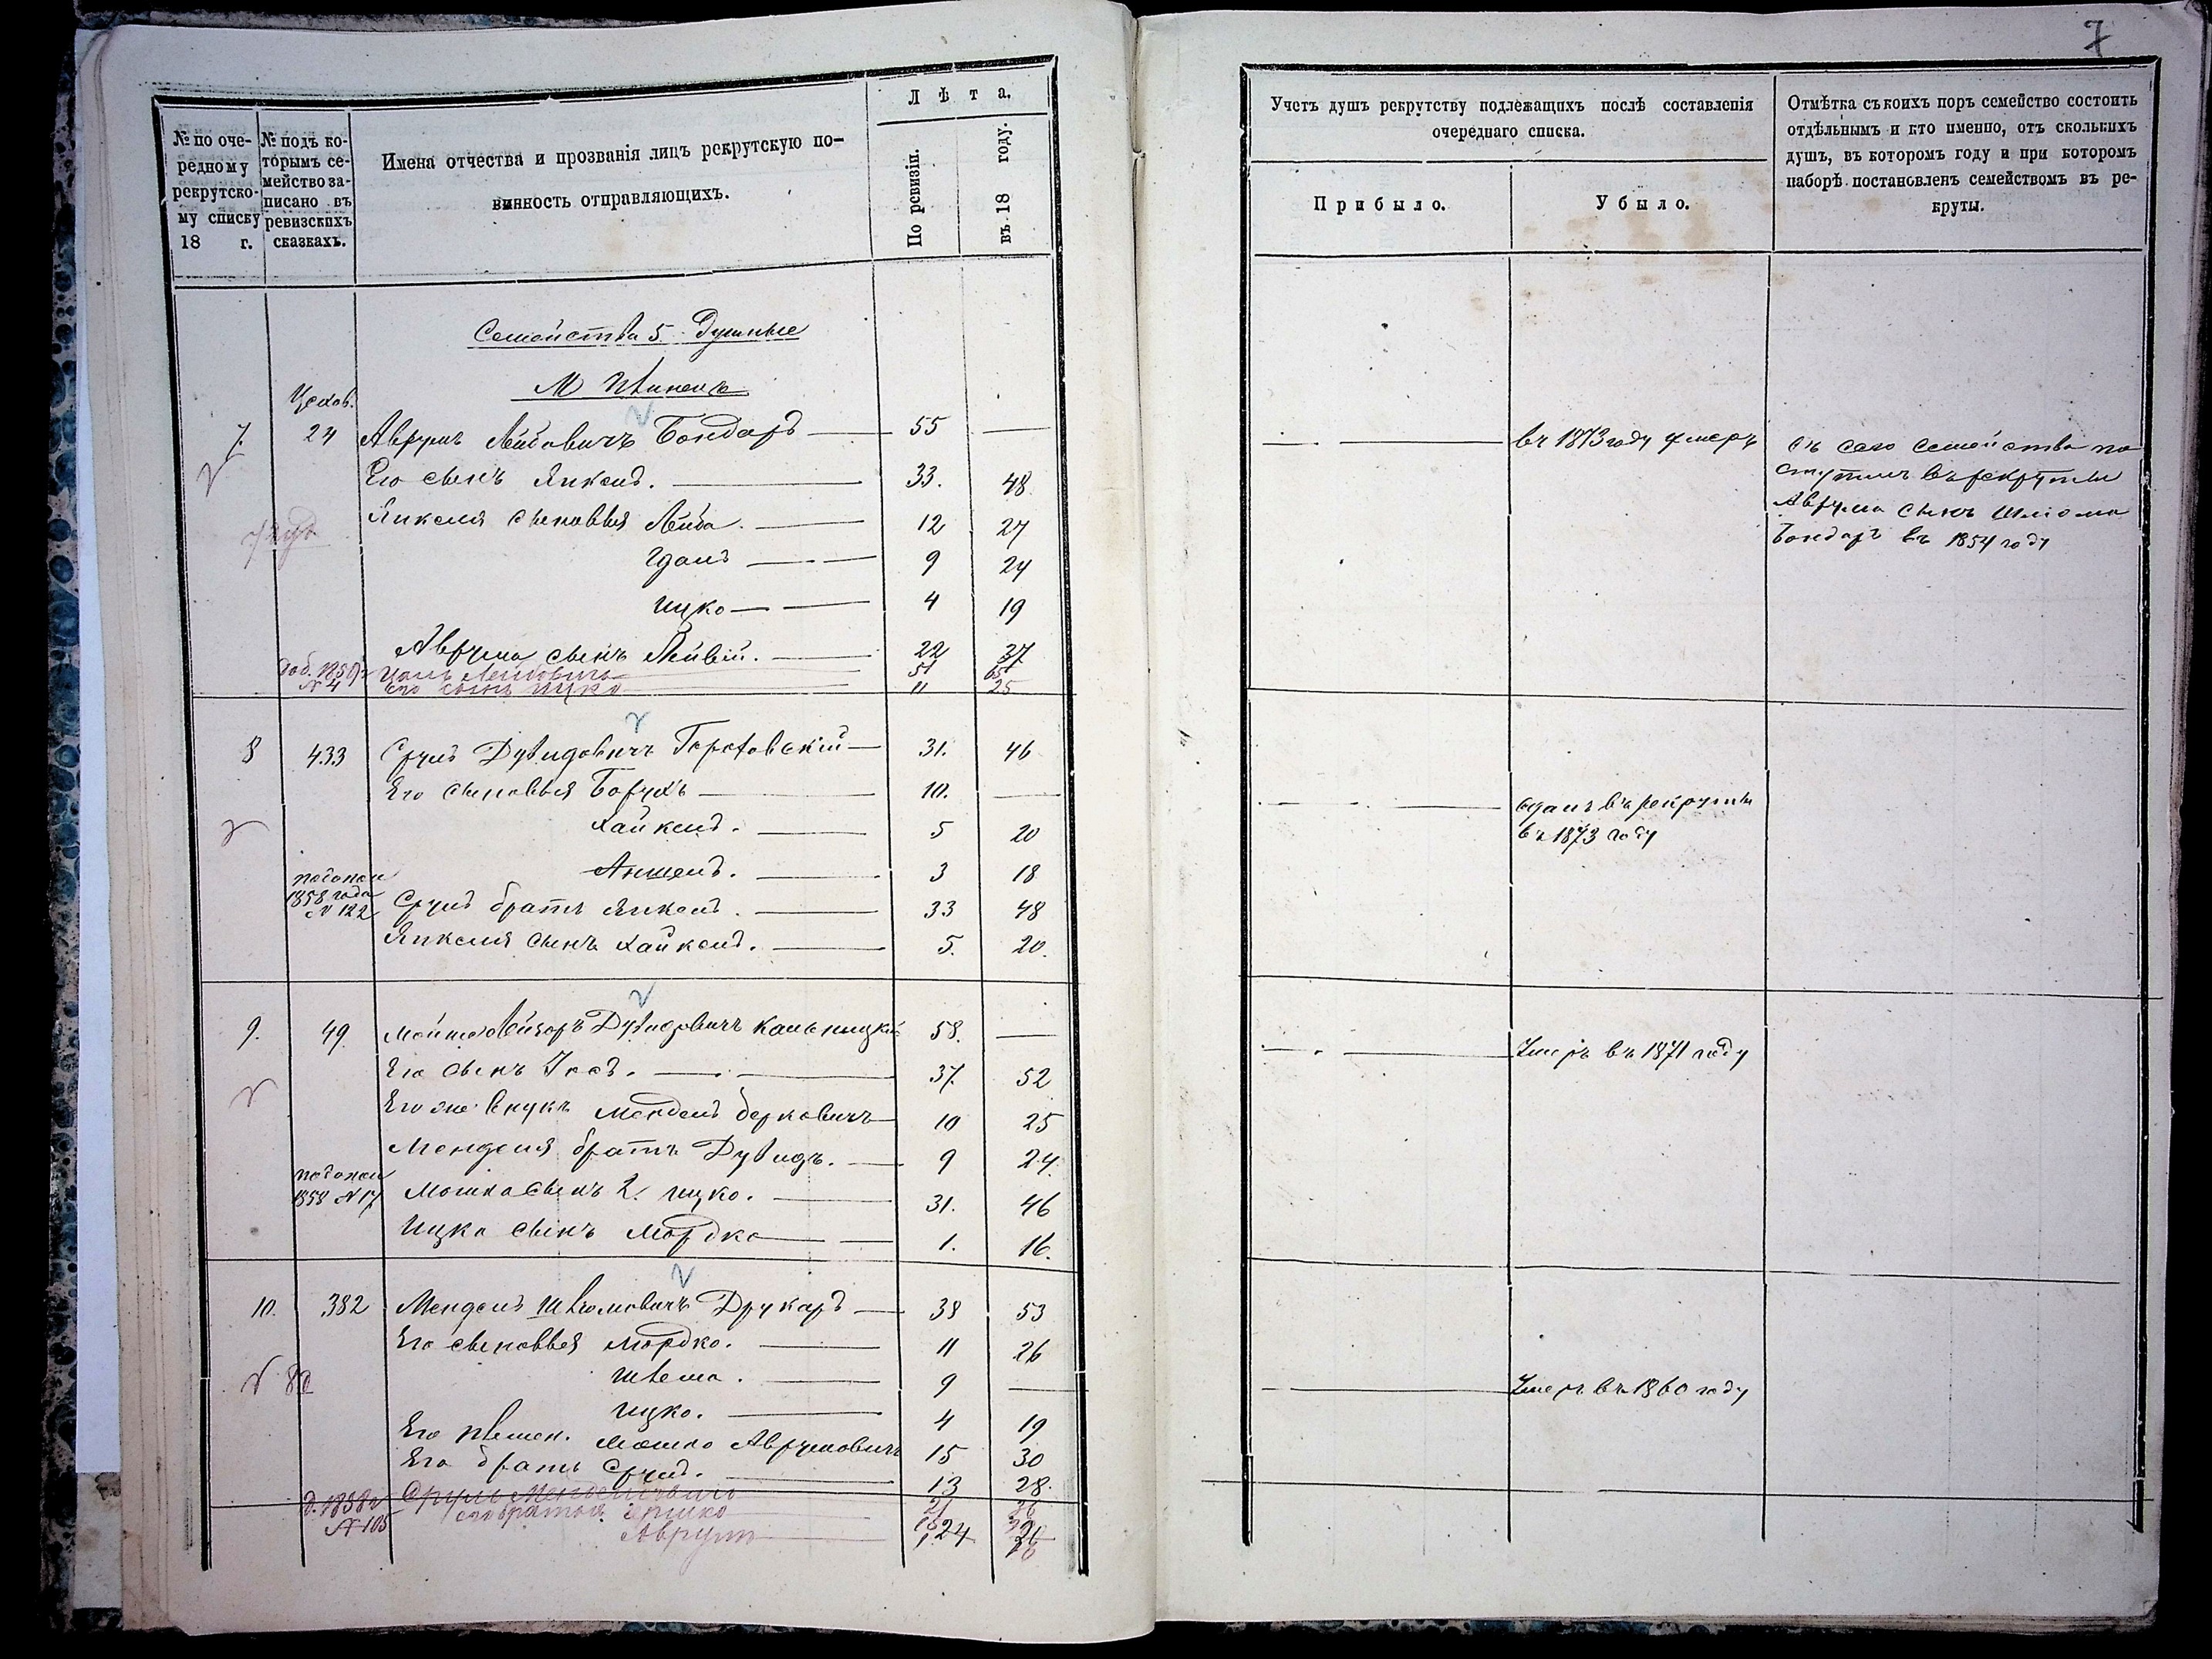 7
№ по оче-
редному
рекрутско-
му списку
18 г.
№ подъ ко-
торымъ се-
мейство за-
писано въ
ревизскихъ
сказкахъ.
Имена отчества и прозванія лицъ рекрутскую по-
винность отправляющихъ.
Лѣта.
По ревизіи.
въ 18 году.
Учетъ душъ рекрутству подлежащихъ послѣ составленія
очереднаго списка.
Прибыло.
Убыло.
Отмѣтка съ коихъ поръ семейство состоитъ
отдѣльнымъ и кто именно, отъ сколькихъ
душъ, въ котором году и при котором
наборѣ постановленъ семействомъ въ ре-
круты.
Семейства 5 Душные
Цехов.
7. 24 Аврумъ Лейбовичъ Бондарь 55 — въ 1873 году умеръ
Его сынъ Янкель. 33. 48
Янкеля сыновья Лейба. 12 27
9 24
Ицко 4 19
Аврума сынъ 22 37
съ сего семейства по
ступилъ въ рекруты
Аврума сынъ Шліома
Бондарь въ 1854 году
№ 4 Его сынъ Ицко 11 25
8 433 Сруль Дувидовичъ 31. 46
Его сыновья Борухъ 10. — сданъ въ рекруты
въ 1873 году
Хайкель. 5 20
Аншель. 3 18
1858 года
№ 122 Сруля братъ Янкель. 33 48
Янкеля сынъ Хайкель. 5. 20.
9. 49 Дувидовичъ Кальницкій 58. — Умеръ въ 1871 году
Его сынъ Іось. 37. 52
Его же внукъ Мендель Берковичъ 10 25
Менделя братъ Дувидъ. 9 24.
1858 № 17 Мошка сынъ 2. Ицко. 31. 46
Ицка сынъ Мордко 1. 16.
10. 382 Мендель Шліомовичъ Друкарь 38 53
Его сыновья Мордко. 11 26
9 — Умеръ въ 1860 году
Ицко. 4 19
Его племен. Мошко Аврумовичъ 15 30
Его братъ Сруль. 13 28.
д. 1858 г. Сруль Менделевичъ 21 36
№ 105 его братья Гершко
Аврумъ